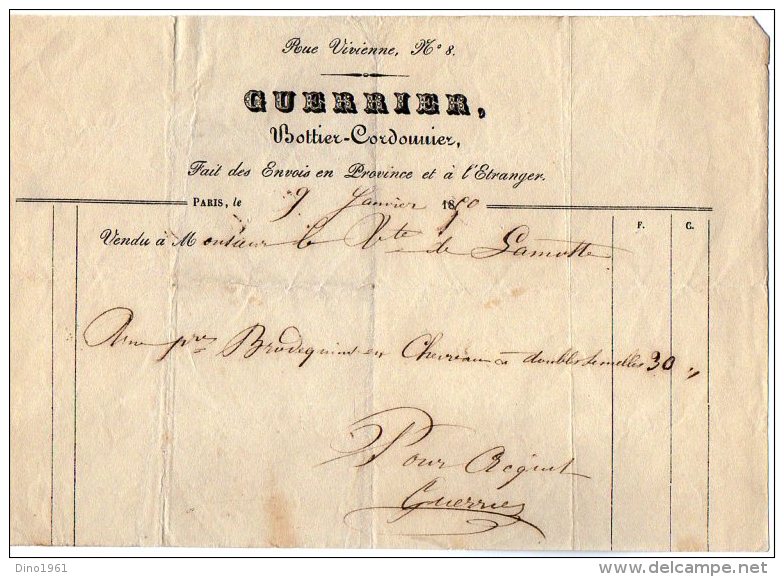 Rue Vivienne, N° 8.
GUERRIER,
Bottier-Cordonnier,
Fait des Envois en Province et à l'Etranger.
PARIS, le 9 Janvier 1860
F. C.
Vendu à Monsieur le Vte de Lamotte
Une pre Brodequins en Chevreau à doubles semelles 30 "
Pour Acquit
Guerrier
Dino1961
delcampe.net